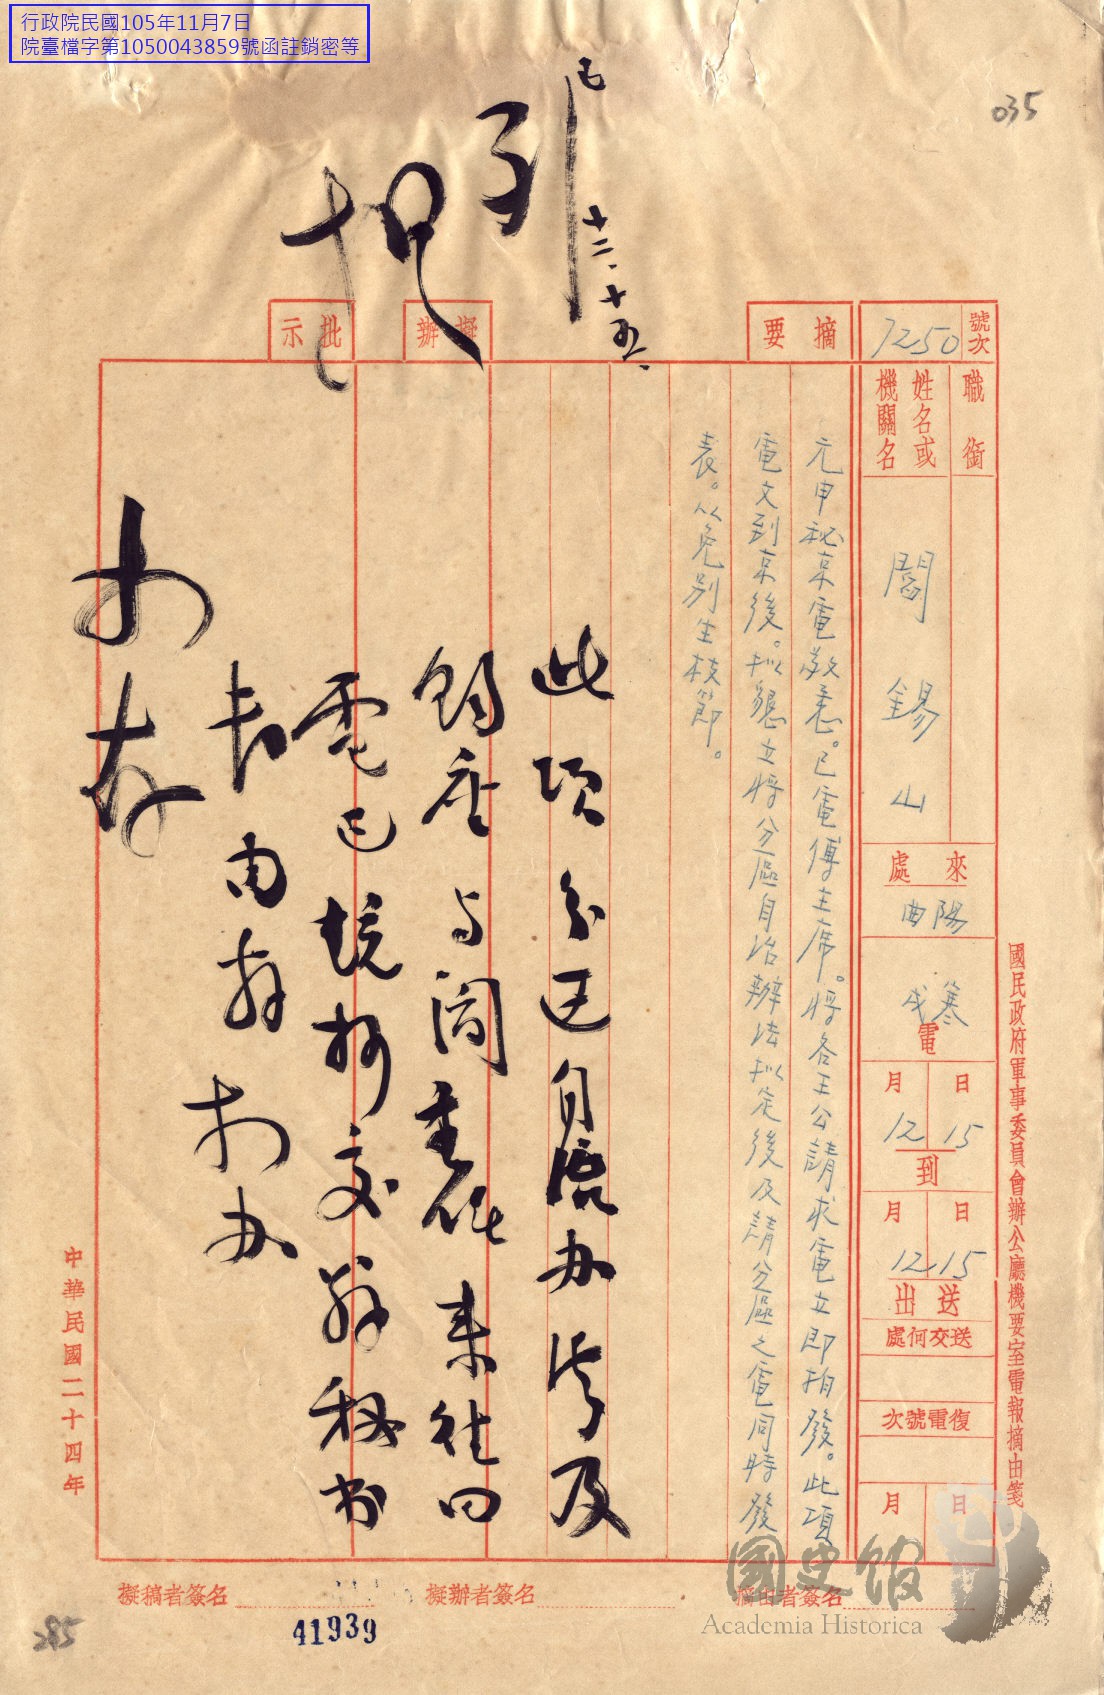 行政院民國105年11月7日
院臺檔字第1050043859號函註銷密等
035
已
十二、十五、
號次
7250
職銜
姓名或
機關名
閻錫山
來處
曲陽
寒
戌
電
月 日
12 15
到
月 日
12 15
送出
送交何處
復電號次
月 日
摘要
元申秘京電敬悉。已電傅主席。將各王公請求電立即拍發。此項
電文到京後。擬懇立將分區自治辦法擬定後及請分區之電同時發
表。以免別生枝節。
擬辦
批示
此項分區自治办法及
鈞座与閻委座来往曰
電已抗抄交彩秘书
長由彩抄办
國民政府軍事委員會辦公廳機要室電報摘由箋
中華民國二十四年
摘由者簽名
擬辦者簽名
擬稿者簽名
國史館
Academia Historica
41939
285